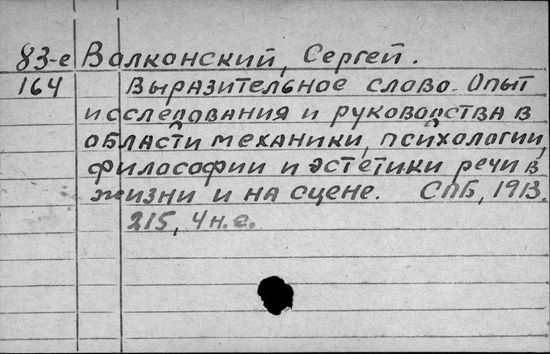 83-е Волконский, Сергей.
164 Выразительное слово. Опыт
исследования и руководства в
области механики, психологии,
философии и эстетики речи в
жизни и на сцене. СПБ, 1913.
215, 4 н. с.